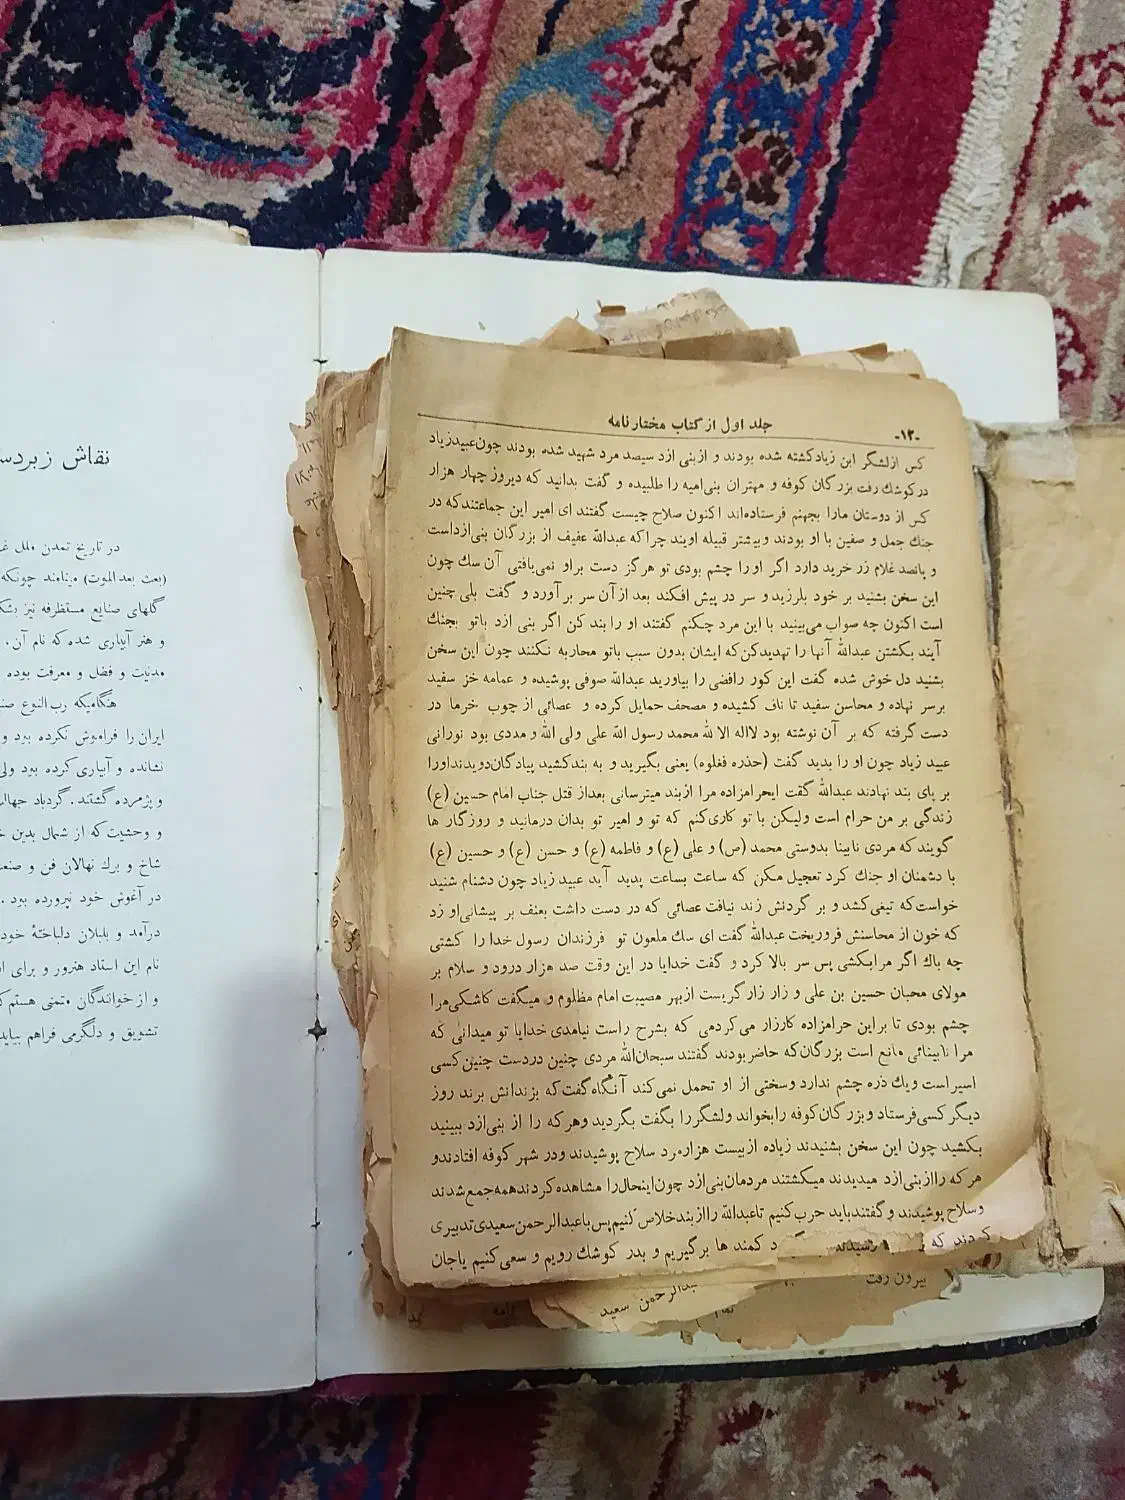 جلد اول از کتاب مختارنامه
-۱۲-
کس ازلشگر ابن زیادکشته شده بودند و ازبنی ازد سیصد مرد شهید شده بودند چون‌عبیدزیاد
درکوشك رفت بزرگان کوفه و مهتران بنی‌امیه را طلبیده و گفت بدانید که دیروز چهار هزار
کس از دوستان مارا بجهنم فرستاده‌اند اکنون صلاح چیست گفتند ای امیر این جماعتندکه در
جنك جمل و صفین با او بودند وبیشتر قبیله اویند چراکه عبدالله عفیف از بزرگان بنی‌ازداست
و پانصد غلام زر خرید دارد اگر اورا چشم بودی تو هرگز دست براو نمی‌یافتی آن سك چون
این سخن بشنید بر خود بلرزید و سر در پیش افکند بعد ازآن سر بر آورد و گفت بلی چنین
است اکنون چه صواب می‌بینید با این مرد چکنم گفتند او را بند کن اگر بنی ازد باتو بجنك
آیند بکشتن عبدالله آنها را تهدیدکن‌که ایشان بدون سبب باتو محاربه نکنند چون این سخن
بشنید دل خوش شده گفت این کور رافضی را بیاورید عبدالله صوفی پوشیده و عمامه خز سفید
برسر نهاده و محاسن سفید تا ناف کشیده و مصحف حمایل کرده و عصائی از چوب خرما در
دست گرفته که بر آن نوشته بود لااله الا لله محمد رسول الله علی ولی الله و مددی بود نورانی
عبید زیاد چون او را بدید گفت (حذره فغلوه) یعنی بگیرید و به بندکشید پیادگان‌دویدنداورا
بر پای بند نهادند عبدالله گفت ایحرامزاده مرا ازبند میترسانی بعداز قتل جناب امام حسین (ع)
زندگی بر من حرام است ولیکن با تو کاری‌کنم که تو و امیر تو بدان درمانید و روزگار ها
گویند که مردی نابینا بدوستی محمد (ص) و علی (ع) و فاطمه (ع) و حسن (ع) و حسین (ع)
با دشمنان او جنك کرد تعجیل مکن که ساعت بساعت پدید آید عبید زیاد چون دشنام شنید
خواست‌که تیغی‌کشد و بر گردنش زند نیافت عصائی که در دست داشت بعنف بر پیشانی‌او زد
که خون از محاسنش فروریخت عبدالله گفت ای سك ملعون تو فرزندان رسول خدا را کشتی
چه باك اگر مرابکشی پس سر بالا کرد و گفت خدایا در این وقت صد هزار درود و سلام بر
مولای محبان حسین بن علی و زار زار گریست ازبهر مصیبت امام مظلوم و میگفت کاشکی‌مرا
چشم بودی تا براین حرامزاده کارزار می‌کردمی که بشرح راست نیامدی خدایا تو میدانی که
مرا نابینائی مانع است بزرگان‌که حاضربودند گفتند سبحان‌الله مردی چنین دردست چنین‌کسی
اسیراست ویك ذره چشم ندارد وسختی از او تحمل نمی‌کند آنگاه‌گفت‌که بزندانش برند روز
دیگر کسی‌فرستاد و بزرگان‌کوفه رابخواند ولشگررا بگفت بگردید وهرکه را از بنی‌ازد ببینید
بکشید چون این سخن بشنیدند زیاده ازبیست هزارمرد سلاح پوشیدند ودر شهر کوفه افتادندو
هر که راازبنی‌ازد میدیدند میکشتند مردمان‌بنی‌ازد چون‌اینحال‌را مشاهده‌کردندهمه‌جمع‌شدند
وسلاح پوشیدند وگفتندباید حرب‌کنیم تاعبدالله راازبندخلاص‌کنیم‌پس‌باعبدالرحمن‌سعیدی‌تدبیری
کردند که رسیدند کمند ها برگیریم و بدر کوشك رویم و سعی‌کنیم یاجان
بیرون رفت
عبدالرحمن سعید
نقاش زبردس
در تاریخ تمدن ملل
(بعث بعدالموت) مینامند چونکه
گلهای صنایع مستظرفه نیز بشک
و هنر آبیاری شده که نام آن.
مدنیت و فضل و معرفت بوده
هنگامیکه رب‌النوع صن
ایران را فراموش نکرده بود و
نشانده و آبیاری کرده بود ولی
و پژمرده گشتند. گردباد جها
و وحشیت که از شمال بدین
شاخ و برك نهالان فن و صنع
در آغوش خود نپرورده بود.
درآمد و بلبلان دلباختهٔ خود
نام این استاد هنرور و برای
و از خوانندگان متمنی هستم ک
تشویق و دلگرمی فراهم بیاید